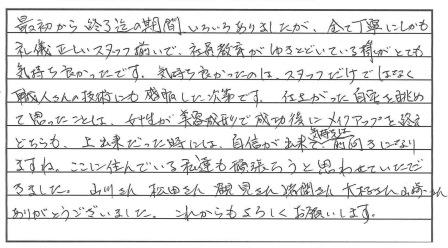 最初から終了迄の期間いろいろありましたが、全て丁寧にしかも
礼儀正しいスタッフ揃いで、社員教育がゆきとどいている様がとても
気持ち良かったです。気持ち良かったのは、スタッフだけではなく
職人さんの技術にも感服した次第です。仕上がった自宅を眺め
て思ったことは、女性が美容成形で成功後にメイクアップを終え
どちらも、上出来だった時には、自信が出来気持も前向きになり
ますね。ここに住んでいる私達も頑張ろうと思わせていただ
きました。山川さん 松田さん 鶴見さん 諸間さん 大村さん 山崎さん
ありがとうございました。これからもよろしくお願いします。